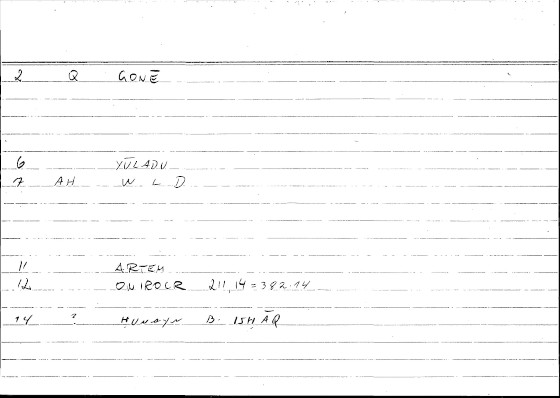 2 Q GONĒ
6 YŪLADU
7 AH W L D
11 ARTEM
12 ONIROCR 211,14=382.14
14 ? ḤUNAYN B. ISḤĀQ